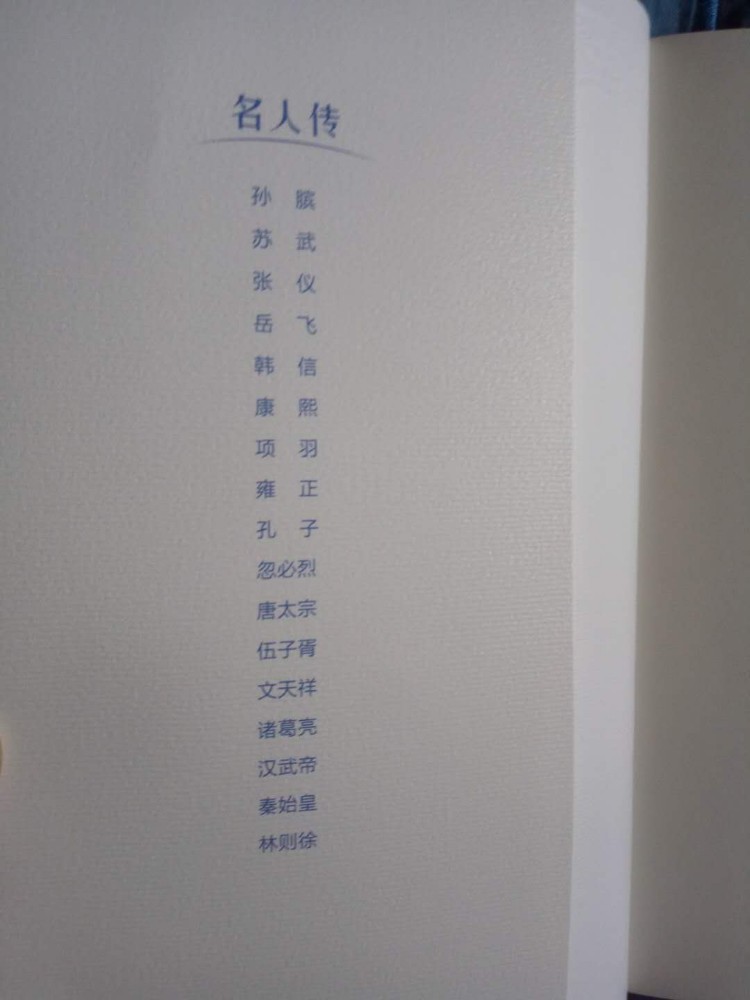 名人传
孙 膑
苏 武
张 仪
岳 飞
韩 信
康 熙
项 羽
雍 正
孔 子
忽必烈
唐太宗
伍子胥
文天祥
诸葛亮
汉武帝
秦始皇
林则徐